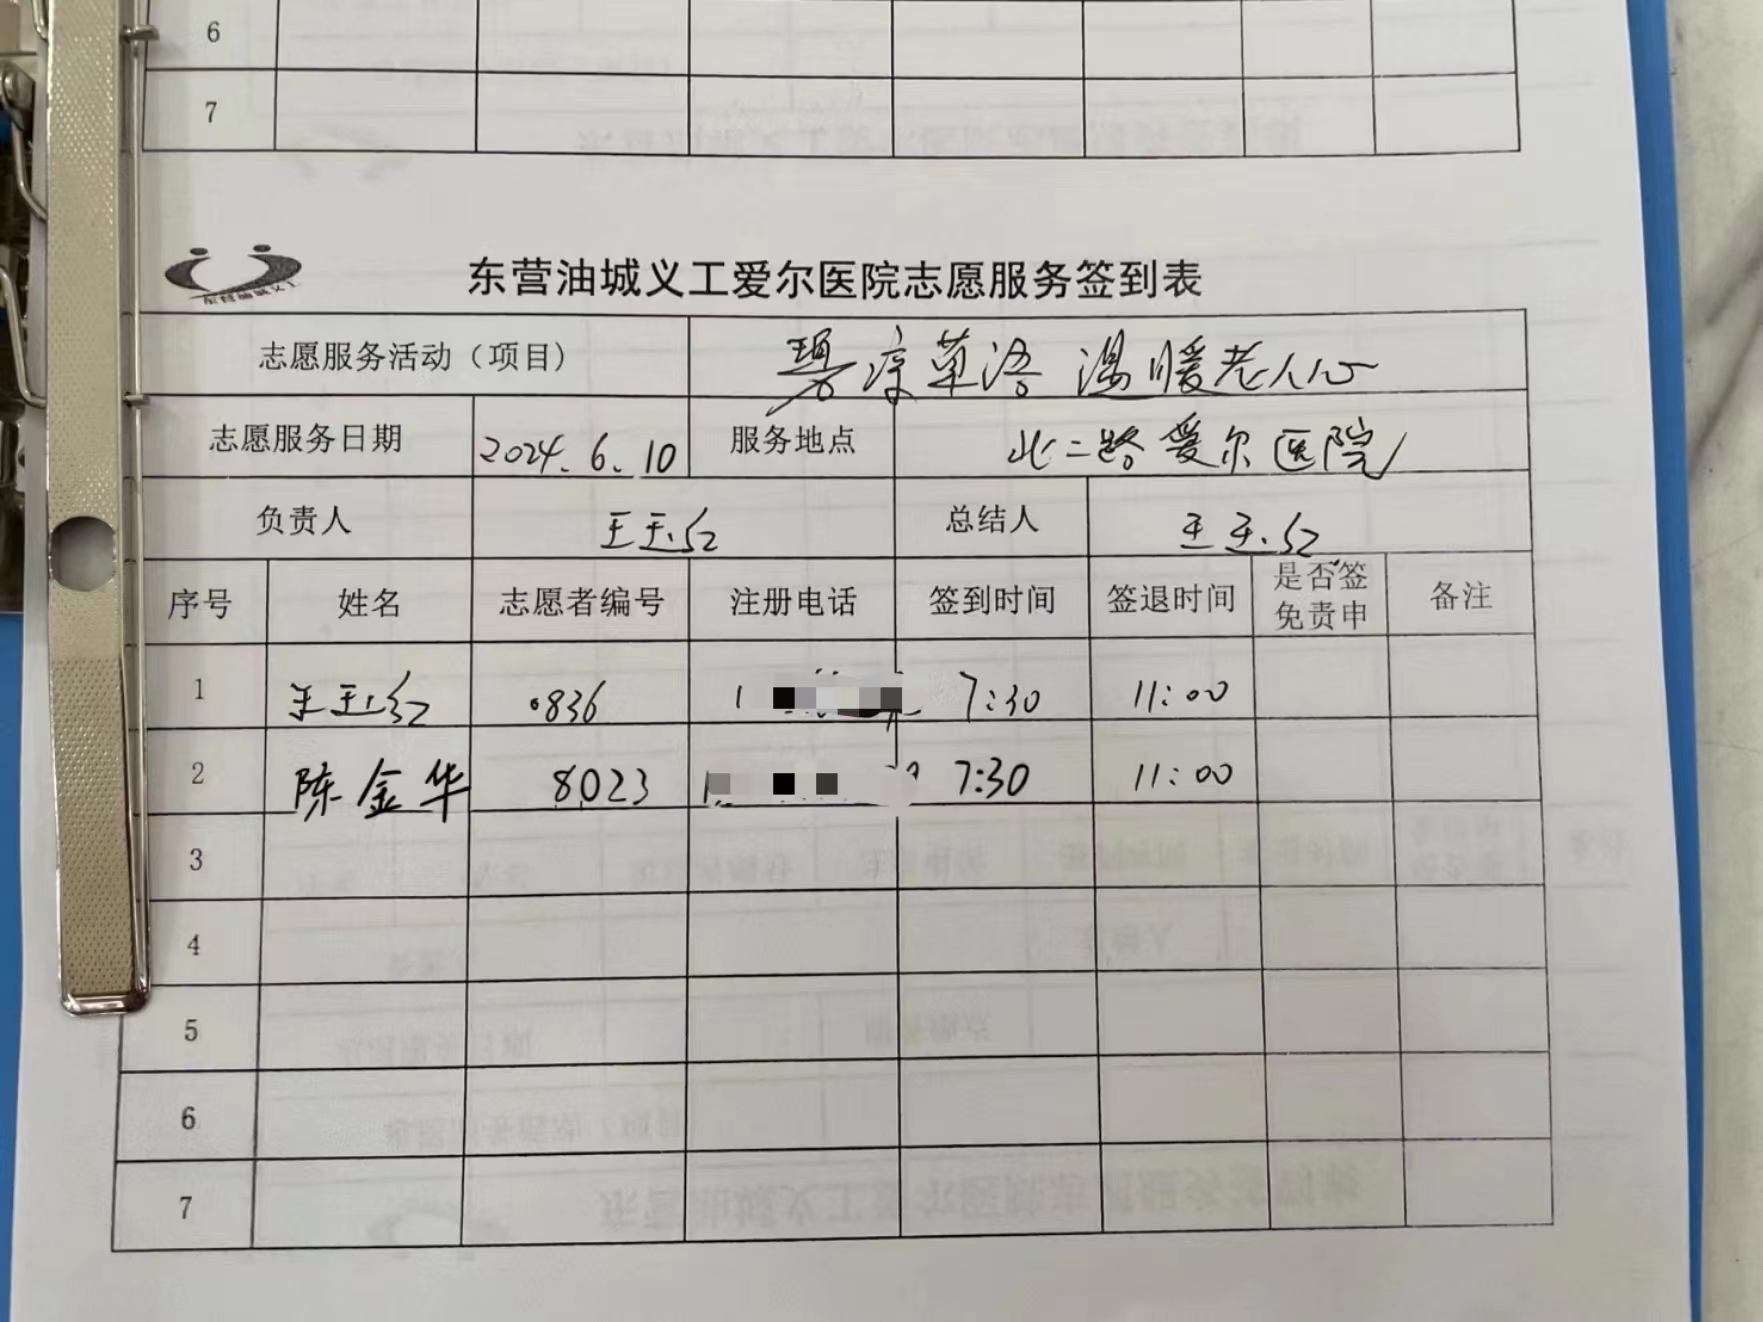 6
7
东营油城义工
东营油城义工爱尔医院志愿服务签到表
志愿服务活动（项目） 温暖老人心
志愿服务日期 2024.6.10 服务地点 北二路爱尔医院
负责人 王玉红 总结人 王玉红
序号 姓名 志愿者编号 注册电话 签到时间 签退时间 是否签免责申 备注
1 王玉红 0836 1 7:30 11:00
2 陈金华 8023 7:30 11:00
3
4
5
6
7